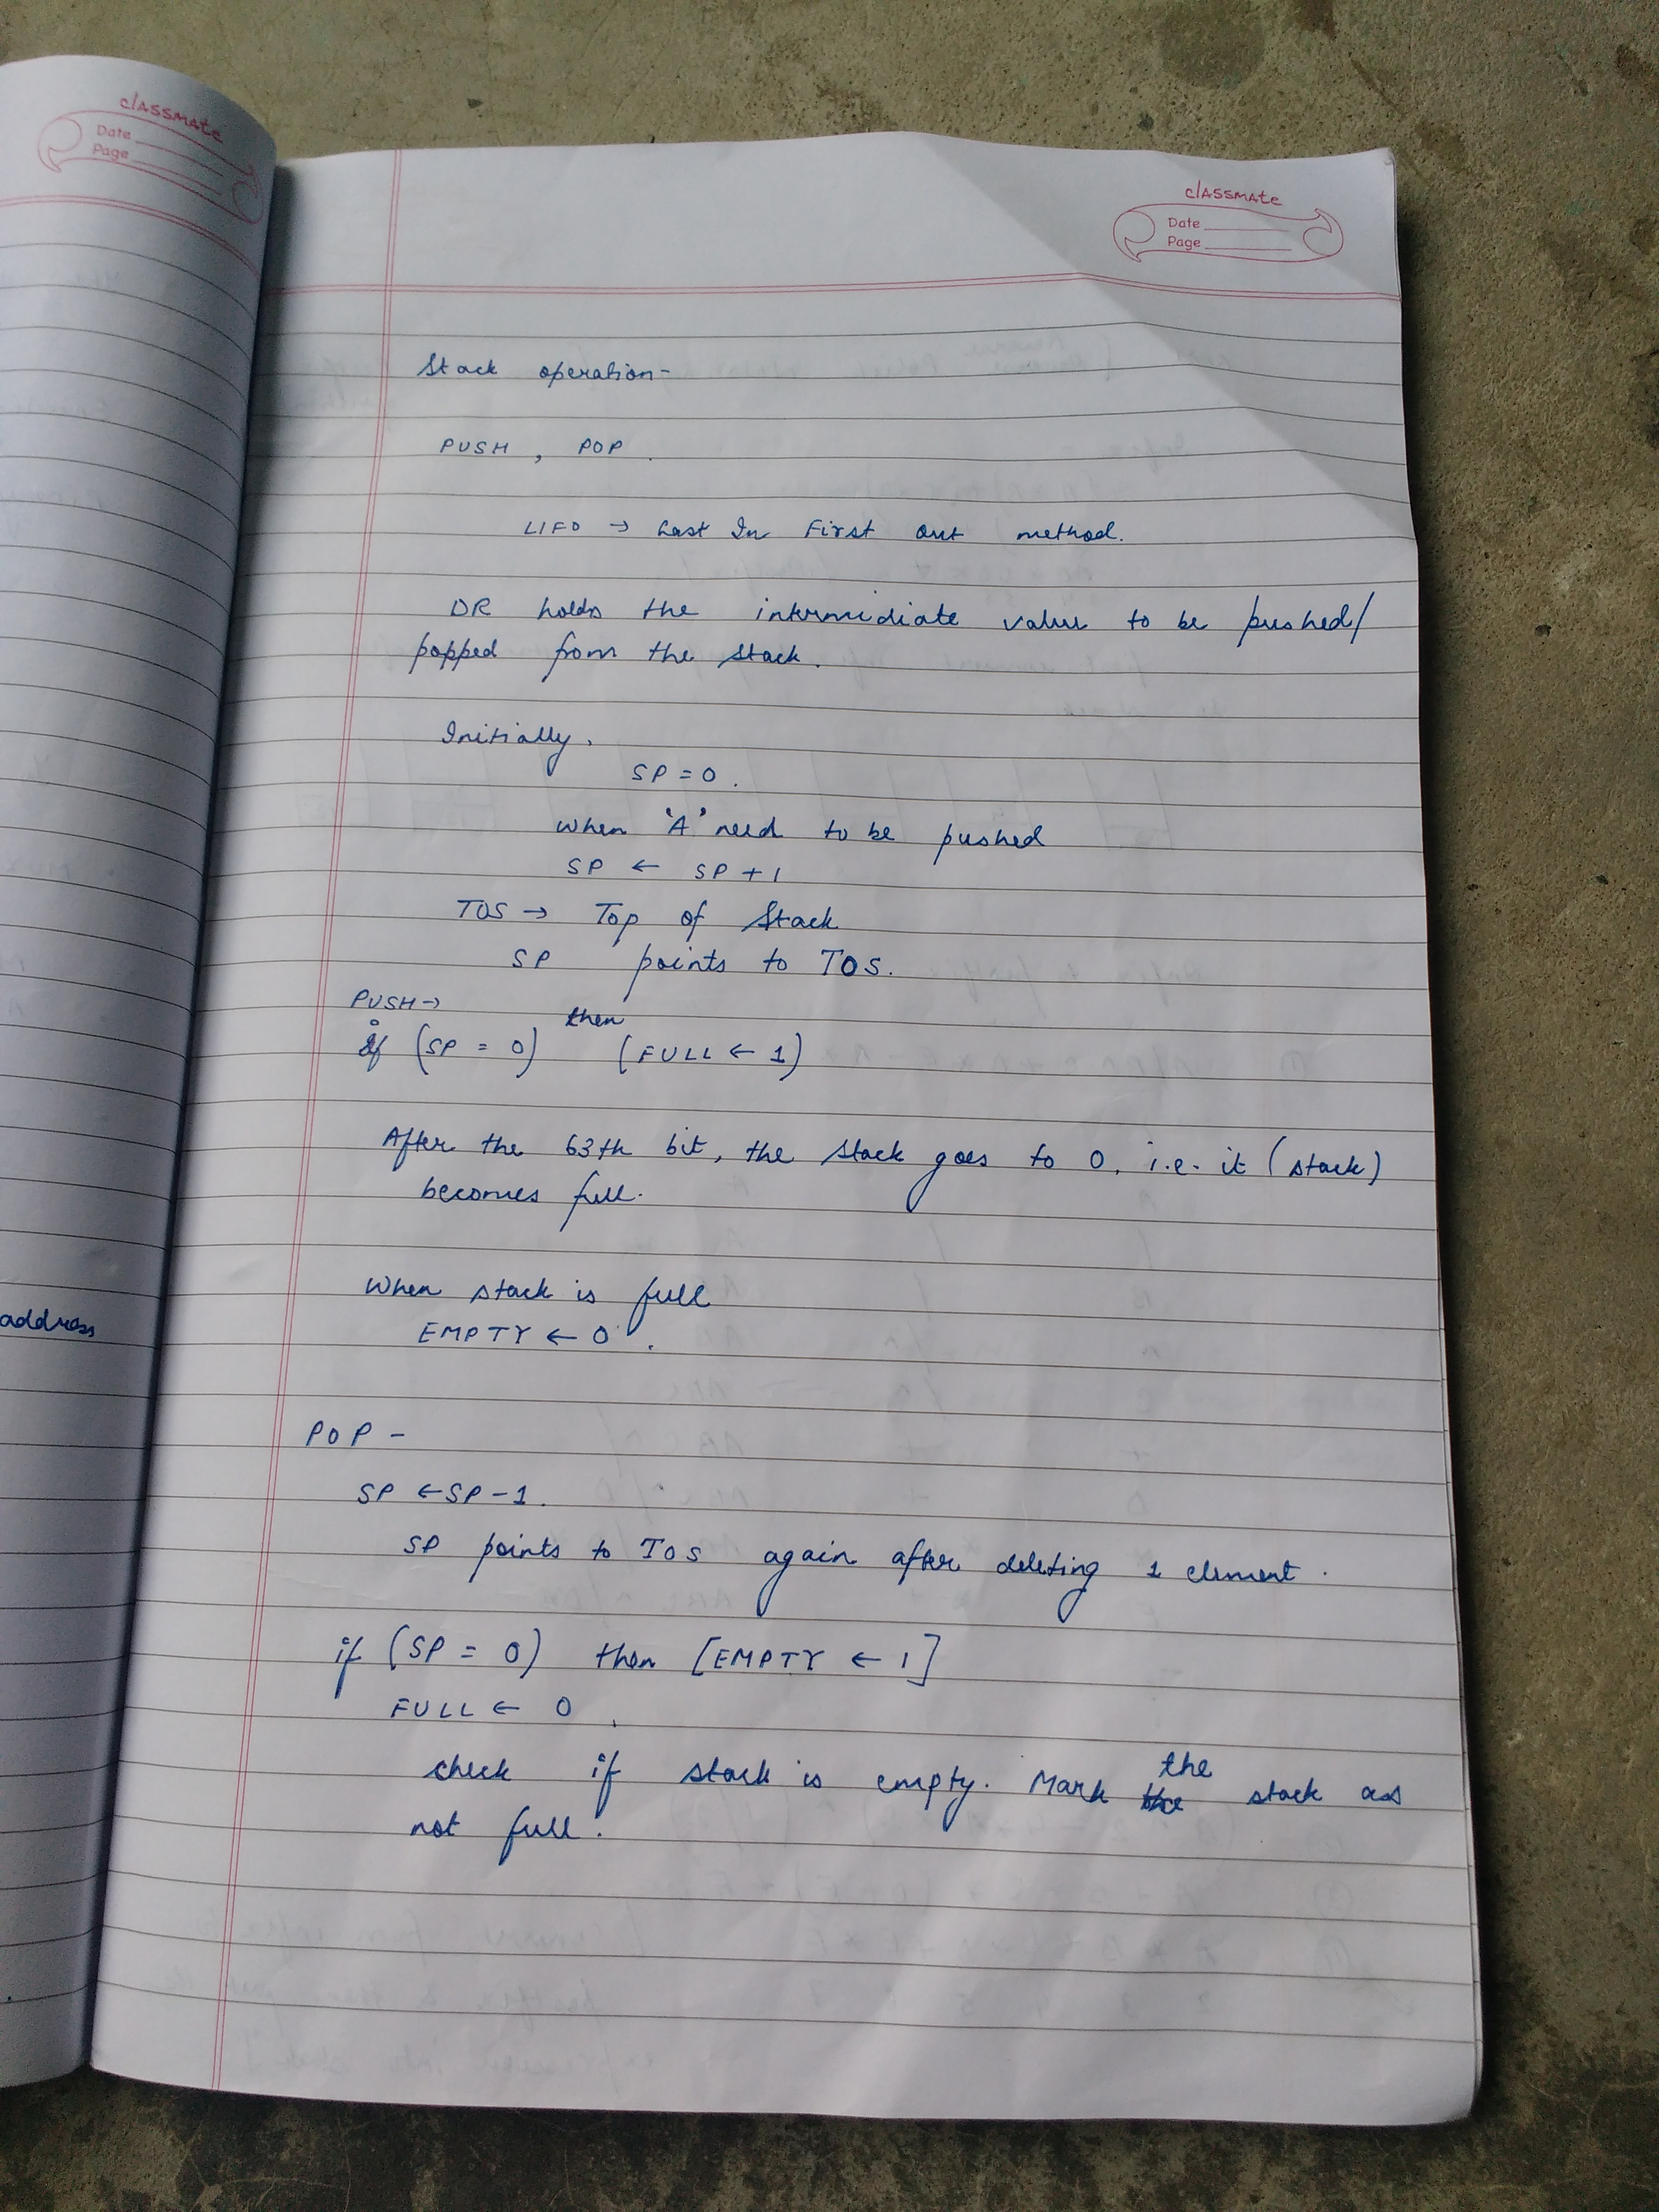 classmate
Date
Page
classmate
Date
Page
address
Stack operation-
PUSH , POP .
LIFO → Last In First Out method.
DR holds the intermidiate value to be pushed/
popped from the stack.
Initially,
SP = 0 .
when 'A' need to be pushed
SP ← SP + 1
TOS → Top of Stack
SP points to TOS.
PUSH →
if (SP = 0) then (FULL ← 1)
After the 63th bit, the stack goes to 0, i.e. it (stack)
becomes full.
When stack is full
EMPTY ← 0 .
POP -
SP ← SP - 1 .
SP points to TOS again after deleting 1 element .
if (SP = 0) then [EMPTY ← 1]
FULL ← 0 .
check if stack is empty. Mark the stack as
not full.